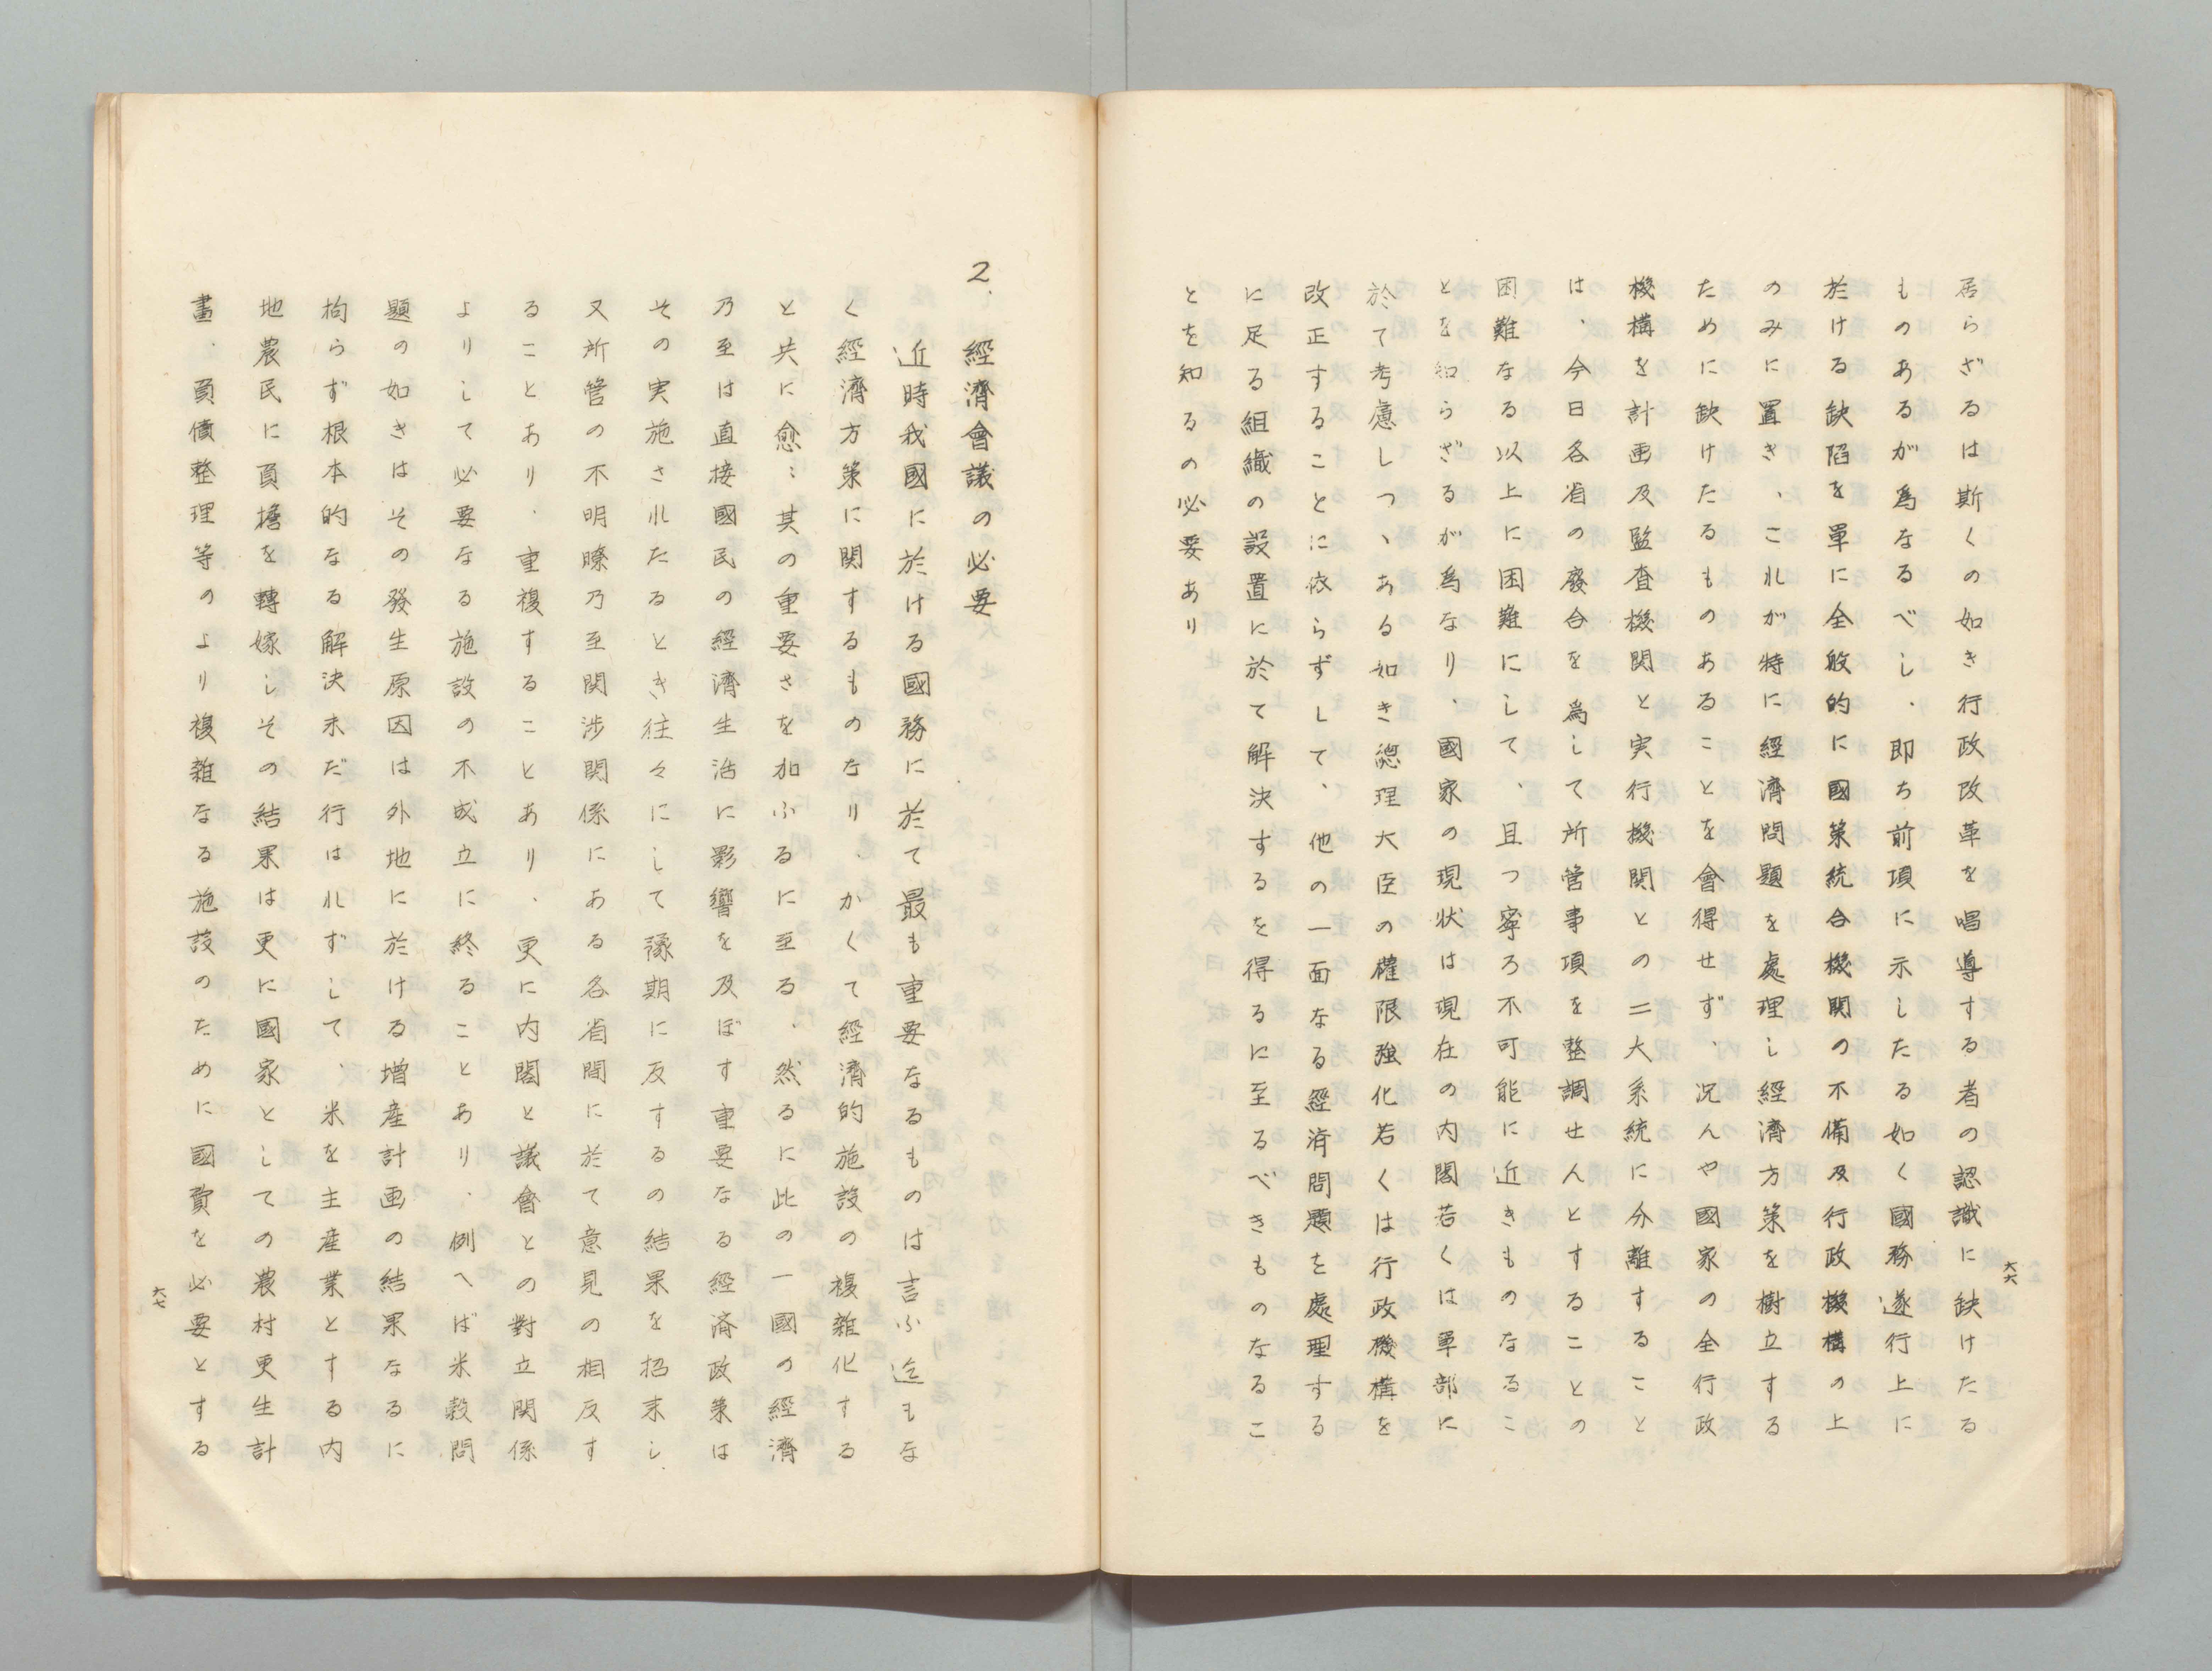 居らざるは斯くの如き行政改革を唱導する者の認識に缺けたる
ものあるが爲なるべし、即ち前項に示したる如く國務遂行上に
於ける缺陷を單に全般的に國策統合機関の不備及行政機構の上
のみに置き、これが特に經濟問題を處理し經濟方策を樹立する
ために缺けたるものあることを會得せず、況んや國家の全行政
機構を計画及監査機関と実行機関との二大系統に分離すること
は、今日各省の廢合を爲して所管事項を整調せんとすることの
困難なる以上に困難にして、且つ寧ろ不可能に近きものなるこ
とを知らざるが爲なり、國家の現状は現在の内閣若くは軍部に
於て考慮しつゝある如き總理大臣の權限強化若くは行政機構を
改正することに依らずして、他の一面なる經済問題を處理する
に足る組織の設置に於て解決するを得るに至るべきものなるこ
とを知るの必要あり
六六
2、經濟會議の必要
近時我國に於ける國務に於て最も重要なるものは言ふ迄もな
く經濟方策に関するものなり、かくて經濟的施設の複雑化する
と共に愈〻其の重要さを加ふるに至る、然るに此の一國の經濟
乃至は直接國民の經濟生活に影響を及ぼす重要なる經済政策は
その実施されたるとき往々にして豫期に反するの結果を招来し
又所管の不明瞭乃至関渉関係にある各省間に於て意見の相反す
ることあり、重複することあり、更に内閣と議會との對立関係
よりして必要なる施設の不成立に終ることあり、例へば米穀問
題の如きはその發生原因は外地に於ける増産計画の結果なるに
拘らず根本的なる解決未だ行はれずして、米を主産業とする内
地農民に負擔を轉嫁しその結果は更に國家としての農村更生計
畫、負債整理等のより複雑なる施設のために國費を必要とする
六七